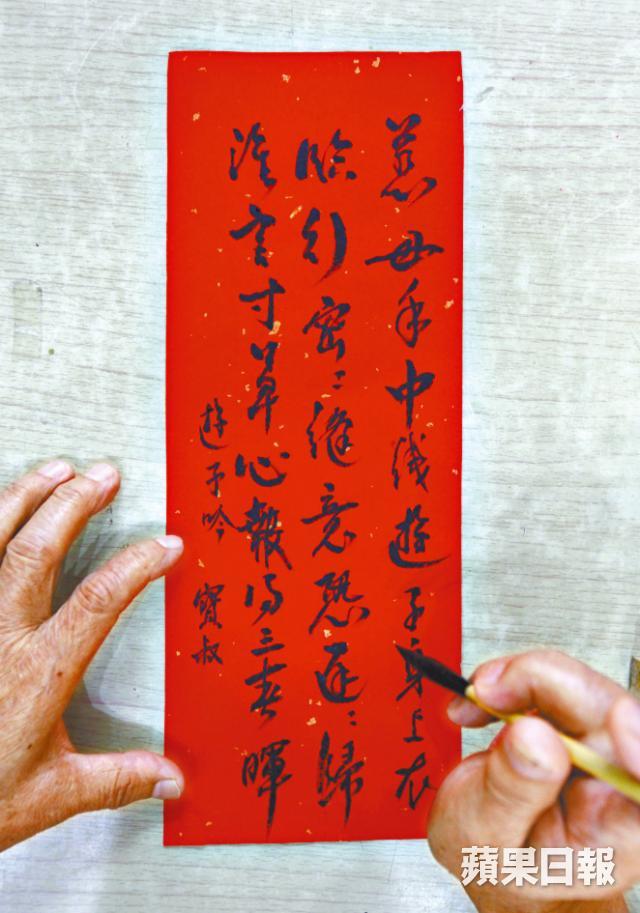 慈母手中綫遊子身上衣
臨行密〻縫意恐遲〻歸
誰言寸草心報得三春暉
遊子吟 寶叔
蘋果日報